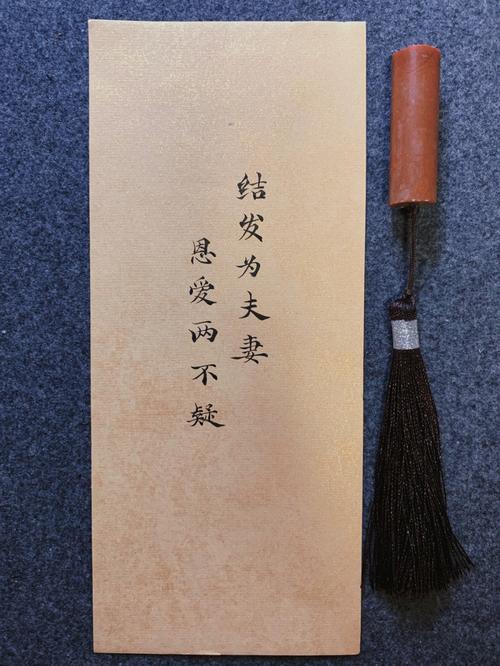 结发为夫妻
恩爱两不疑